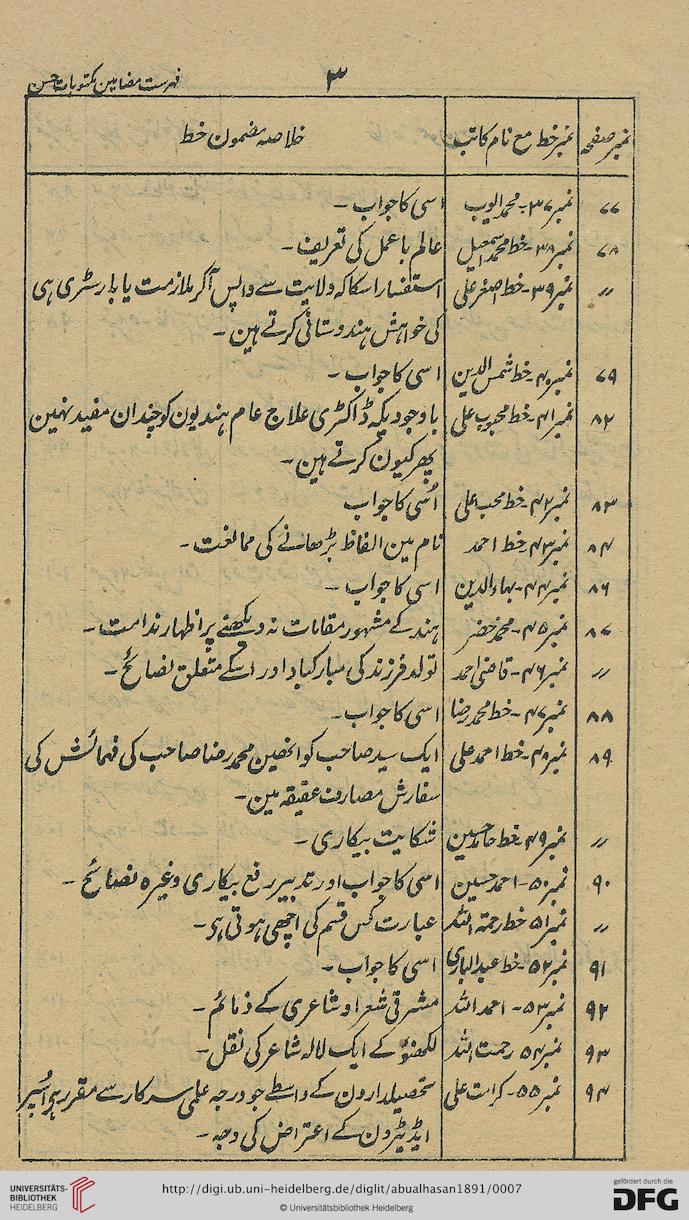 ۳
فہرست مضامین مکتوبات حسن
نمبر صفحہ | نمبر خط مع نام کاتب | خلاصہ مضمون خط
۷۷ | نمبر ۳۷- محمد ایوب | اسی کا جواب -
۷۸ | نمبر ۳۸- خط محمد اسمعیل | عالم باعمل کی تعریف -
〃 | نمبر ۳۹- خط اصغر علی | استفسار اسکا کہ ولایت سے واپس آکر ملازمت یا بارسٹری ہی
کی خواہش ہندوستانی کرتے ہین -
۷۹ | نمبر ۴۰- خط شمس الدین | اسی کا جواب -
۸۲ | نمبر ۴۱- خط محبوب علی | باوجودیکہ ڈاکٹری علاج عام ہندیون کو چندان مفید نہین
پھر کیون کرتے ہین -
۸۳ | نمبر ۴۲- خط محب علی | اُسی کا جواب
۸۴ | نمبر ۴۳- خط احمد | نام مین الفاظ بڑھانے کی ممانعت -
۸۶ | نمبر ۴۴- بہاء الدین | اسی کا جواب -
۸۷ | نمبر ۴۵- محمد خضر | ہند کے مشہور مقامات نہ دیکھنے پر اظہار ندامت -
〃 | نمبر ۴۶- قاضی احمد | تولد فرزند کی مبارکباد اور اسکے متعلق نصائح -
۸۸ | نمبر ۴۷- خط محمد رضا | اسی کا جواب -
۸۹ | نمبر ۴۸- خط احمد علی | ایک سید صاحب کو انھین محمد رضا صاحب کی فہمائش کی
سفارش مصارف عقیقہ مین -
〃 | نمبر ۴۹- خط حامد حسین | شکایت بیکاری -
۹۰ | نمبر ۵۰- احمد حسین | اسی کا جواب اور تدبیر رفع بیکاری وغیرہ نصائح -
〃 | نمبر ۵۱ خط رحمۃ اللہ | عبارت کس قسم کی اچھی ہوتی ہی -
۹۱ | نمبر ۵۲- خط عبد الباری | اسی کا جواب -
۹۲ | نمبر ۵۳- احمد اللہ | مشرقی شعرا و شاعری کے ذمائم -
۹۳ | نمبر ۵۴ رحمت اللہ | لکھنؤ کے ایک لالہ شاعر کی نقل -
۹۴ | نمبر ۵۵- کرامت علی | تحصیلدارون کے واسطے جو درجہ علمی سرکار سے مقرر ہی اُسپر
ایڈیٹرون کے اعتراض کی وجہ -
UNIVERSITÄTS-
BIBLIOTHEK
HEIDELBERG
http://digi.ub.uni-heidelberg.de/diglit/abualhasan1891/0007
© Universitätsbibliothek Heidelberg
gefördert durch die
DFG